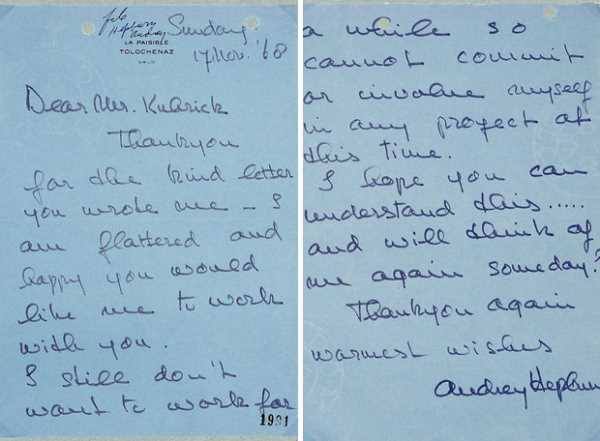 Hepburn
Audrey
LA PAISIBLE
TOLOCHENAZ
VAUD
Sunday
17 Nov. '68
Dear Mr. Kubrick
Thankyou
for the kind letter
you wrote me – I
am flattered and
happy you would
like me to work
with you.
I still don't
want to work for
1981
a while so
cannot commit
or involve myself
in any proyect at
this time.
I hope you can
understand this.....
and will think of
me again someday?
Thankyou again
warmest wishes
Audrey Hepburn